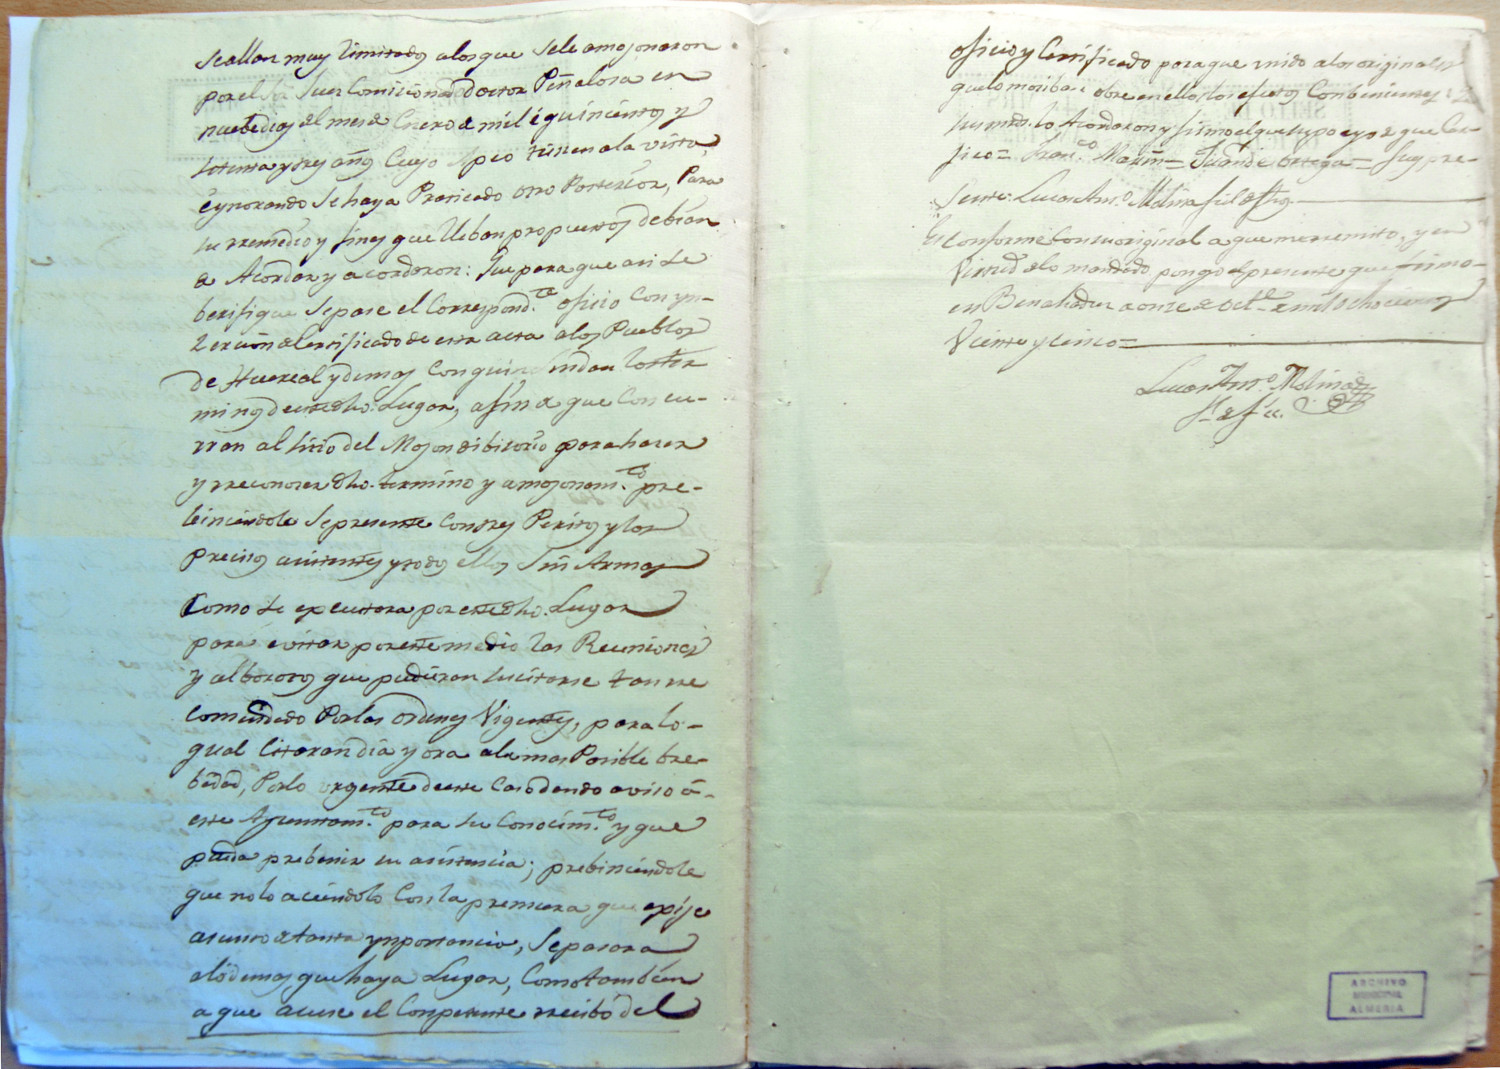 se allan muy limitados a los que se le amojonaron
por el Sor Juez Comicionado Doctor Peñalosa en
nuebe dias del mes de Enero de mil é quinientos y
setenta y tres años Cuyo Apeo tienen a la vista,
é ygnorando se haya Praticado otro Posterior, Para
su rremedio y fines que lleban propuestos debian
de Acordar y acordaron: Que para que asi se
berifique se pase el Correspond.te oficio con yn-
sercion del certificado de esta acta a los Pueblos
de Huercal y demas con quien lindan los ter
minos de este dho. Lugar, a fin de que concu-
rran al sitio del Mojon dibisorio para hacer
y rreconocer dho. termino y amojonam.to pre-
biniendole se presente con tres Peritos y los
precisos asistentes y todos ellos sin Armas
Como se executara por este dho. Lugar
para évitar por este medio las Reuniones
y alborotos que pudieran sucitarse tan rre
comendado Por las ordenes Vigentes, para lo-
qual citaran dia y ora a la mas Posible bre-
bedad, Por lo urgente de este Caso dando aviso á-
este Ayuntam.to para su Conocim.to y que
pueda prebenir su asistencia; prebiniendole
que no lo aciendolo con la premura que exije
asunto de tanta ynportancia, se pasara
a lo demas que haya Lugar, Como tambien
a que acuse el Conpetente rrecibo del
oficio y Certificado para que unido a los originales
que lo moriban obre en ellos los efectos Conbenientes:
sus mrds. lo Acordaron y firmo el que supo eyo de que Cer-
tifico= Fran.co Marin= Juan de ortega= Fuy pre-
sente: Lucas Ant.o Molina fiel de fhos
Es conforme con su original a que me rremito, y en
Virtud de lo mandado pongo el presente que firmo
en Benahadux a onze de Oct.e de mil ochocientos
Veinte y cinco=
Lucas Ant.o Molina
f.l de f.s
ARCHIVO
MUNICIPAL
ALMERIA